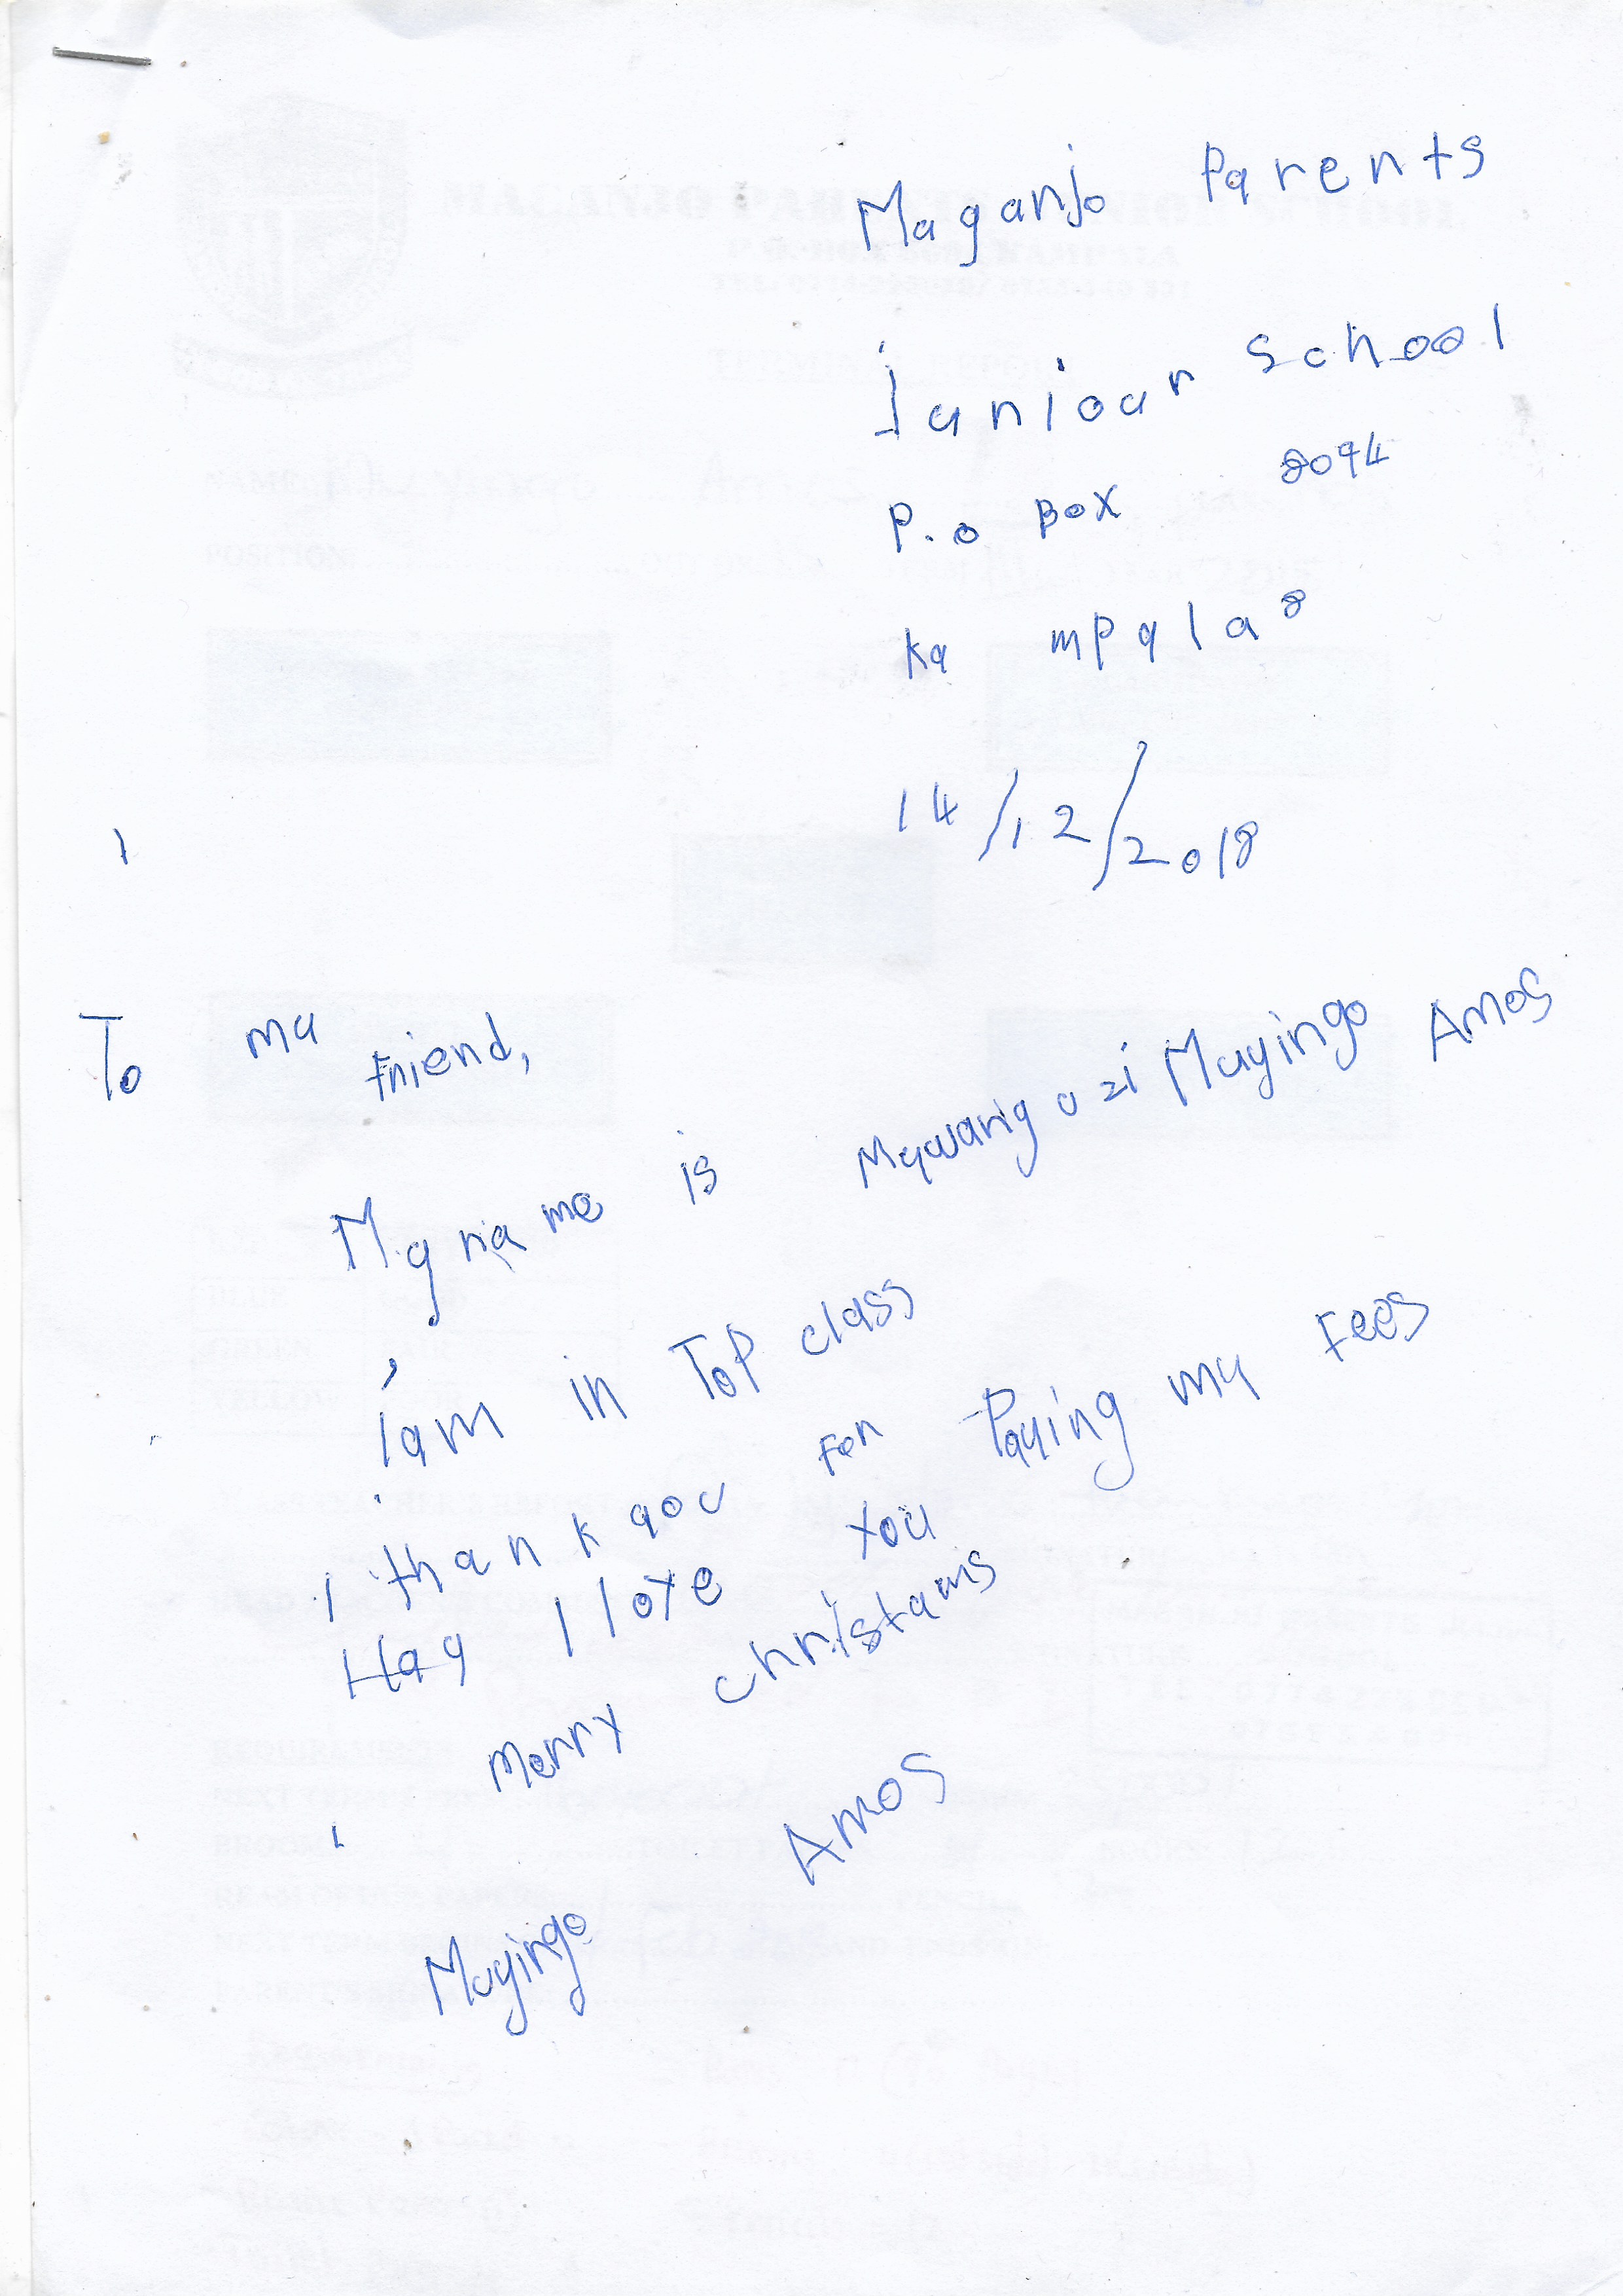 Maganjo Parents
Juniour School
P.O BOX 2094
Ka mpala
14/12/2018
To my friend,
My name is Mywangozi Muyingo Amos
I am in Top class
I thank you For Paying my Fees
Hay I love You
merry christams
Muyingo Amos